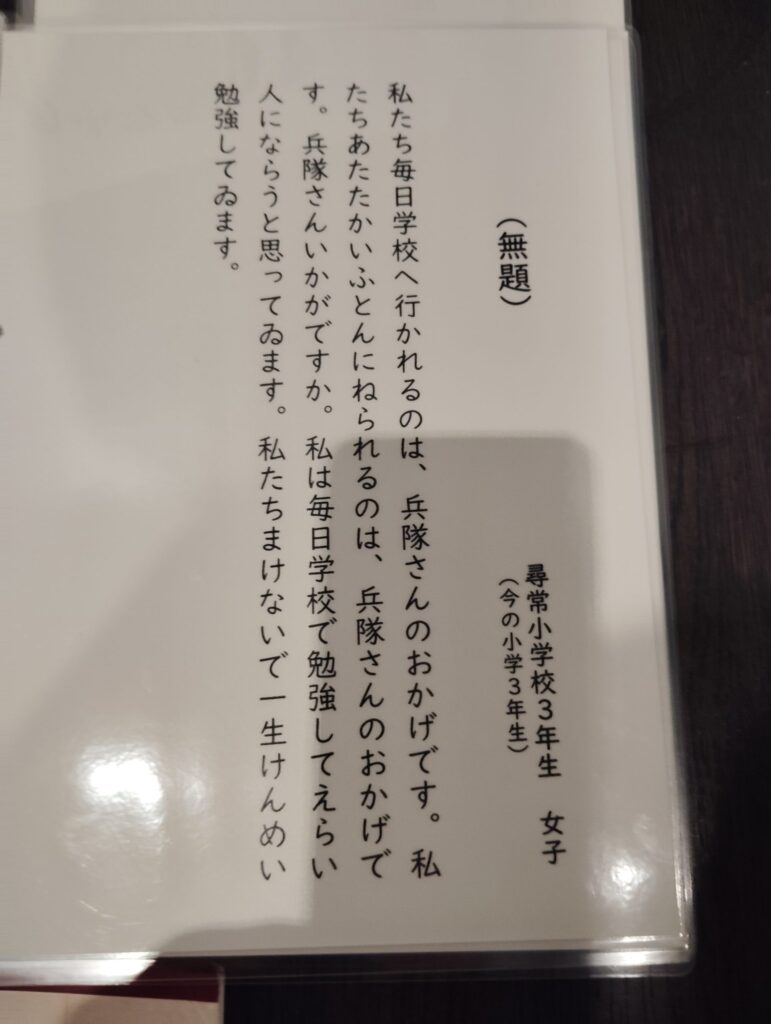 （無題）
尋常小学校３年生　女子
（今の小学３年生）
私たち毎日学校へ行かれるのは、兵隊さんのおかげです。私
たちあたたかいふとんにねられるのは、兵隊さんのおかげで
す。兵隊さんいかがですか。私は毎日学校で勉強してえらい
人にならうと思ってゐます。私たちまけないで一生けんめい
勉強してゐます。